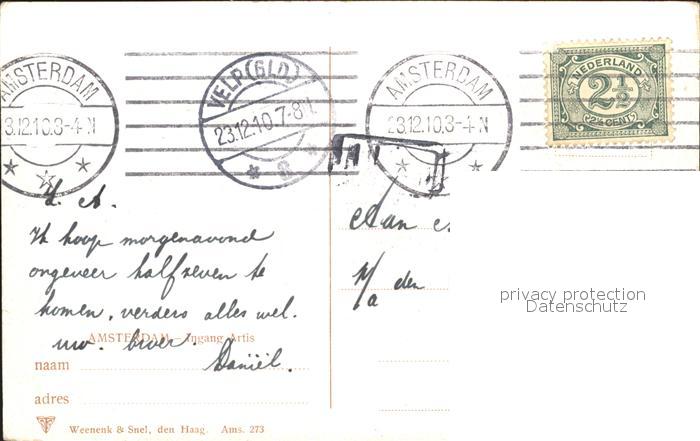 AMSTERDAM
23.12.10.3-4.N
VELP (GLD.)
23.12.10.7-8
AMSTERDAM
23.12.10.3-4.N
NEDERLAND
2½
(2½ CENT)
Z. A.
Ik hoop morgenavond
ongeveer half zeven te
komen, verders alles wel.
uw. broer.
Daniël.
Aan
p/a den
privacy protection
Datenschutz
AMSTERDAM Ingang Artis
naam
adres
Weenenk & Snel, den Haag. Ams. 273